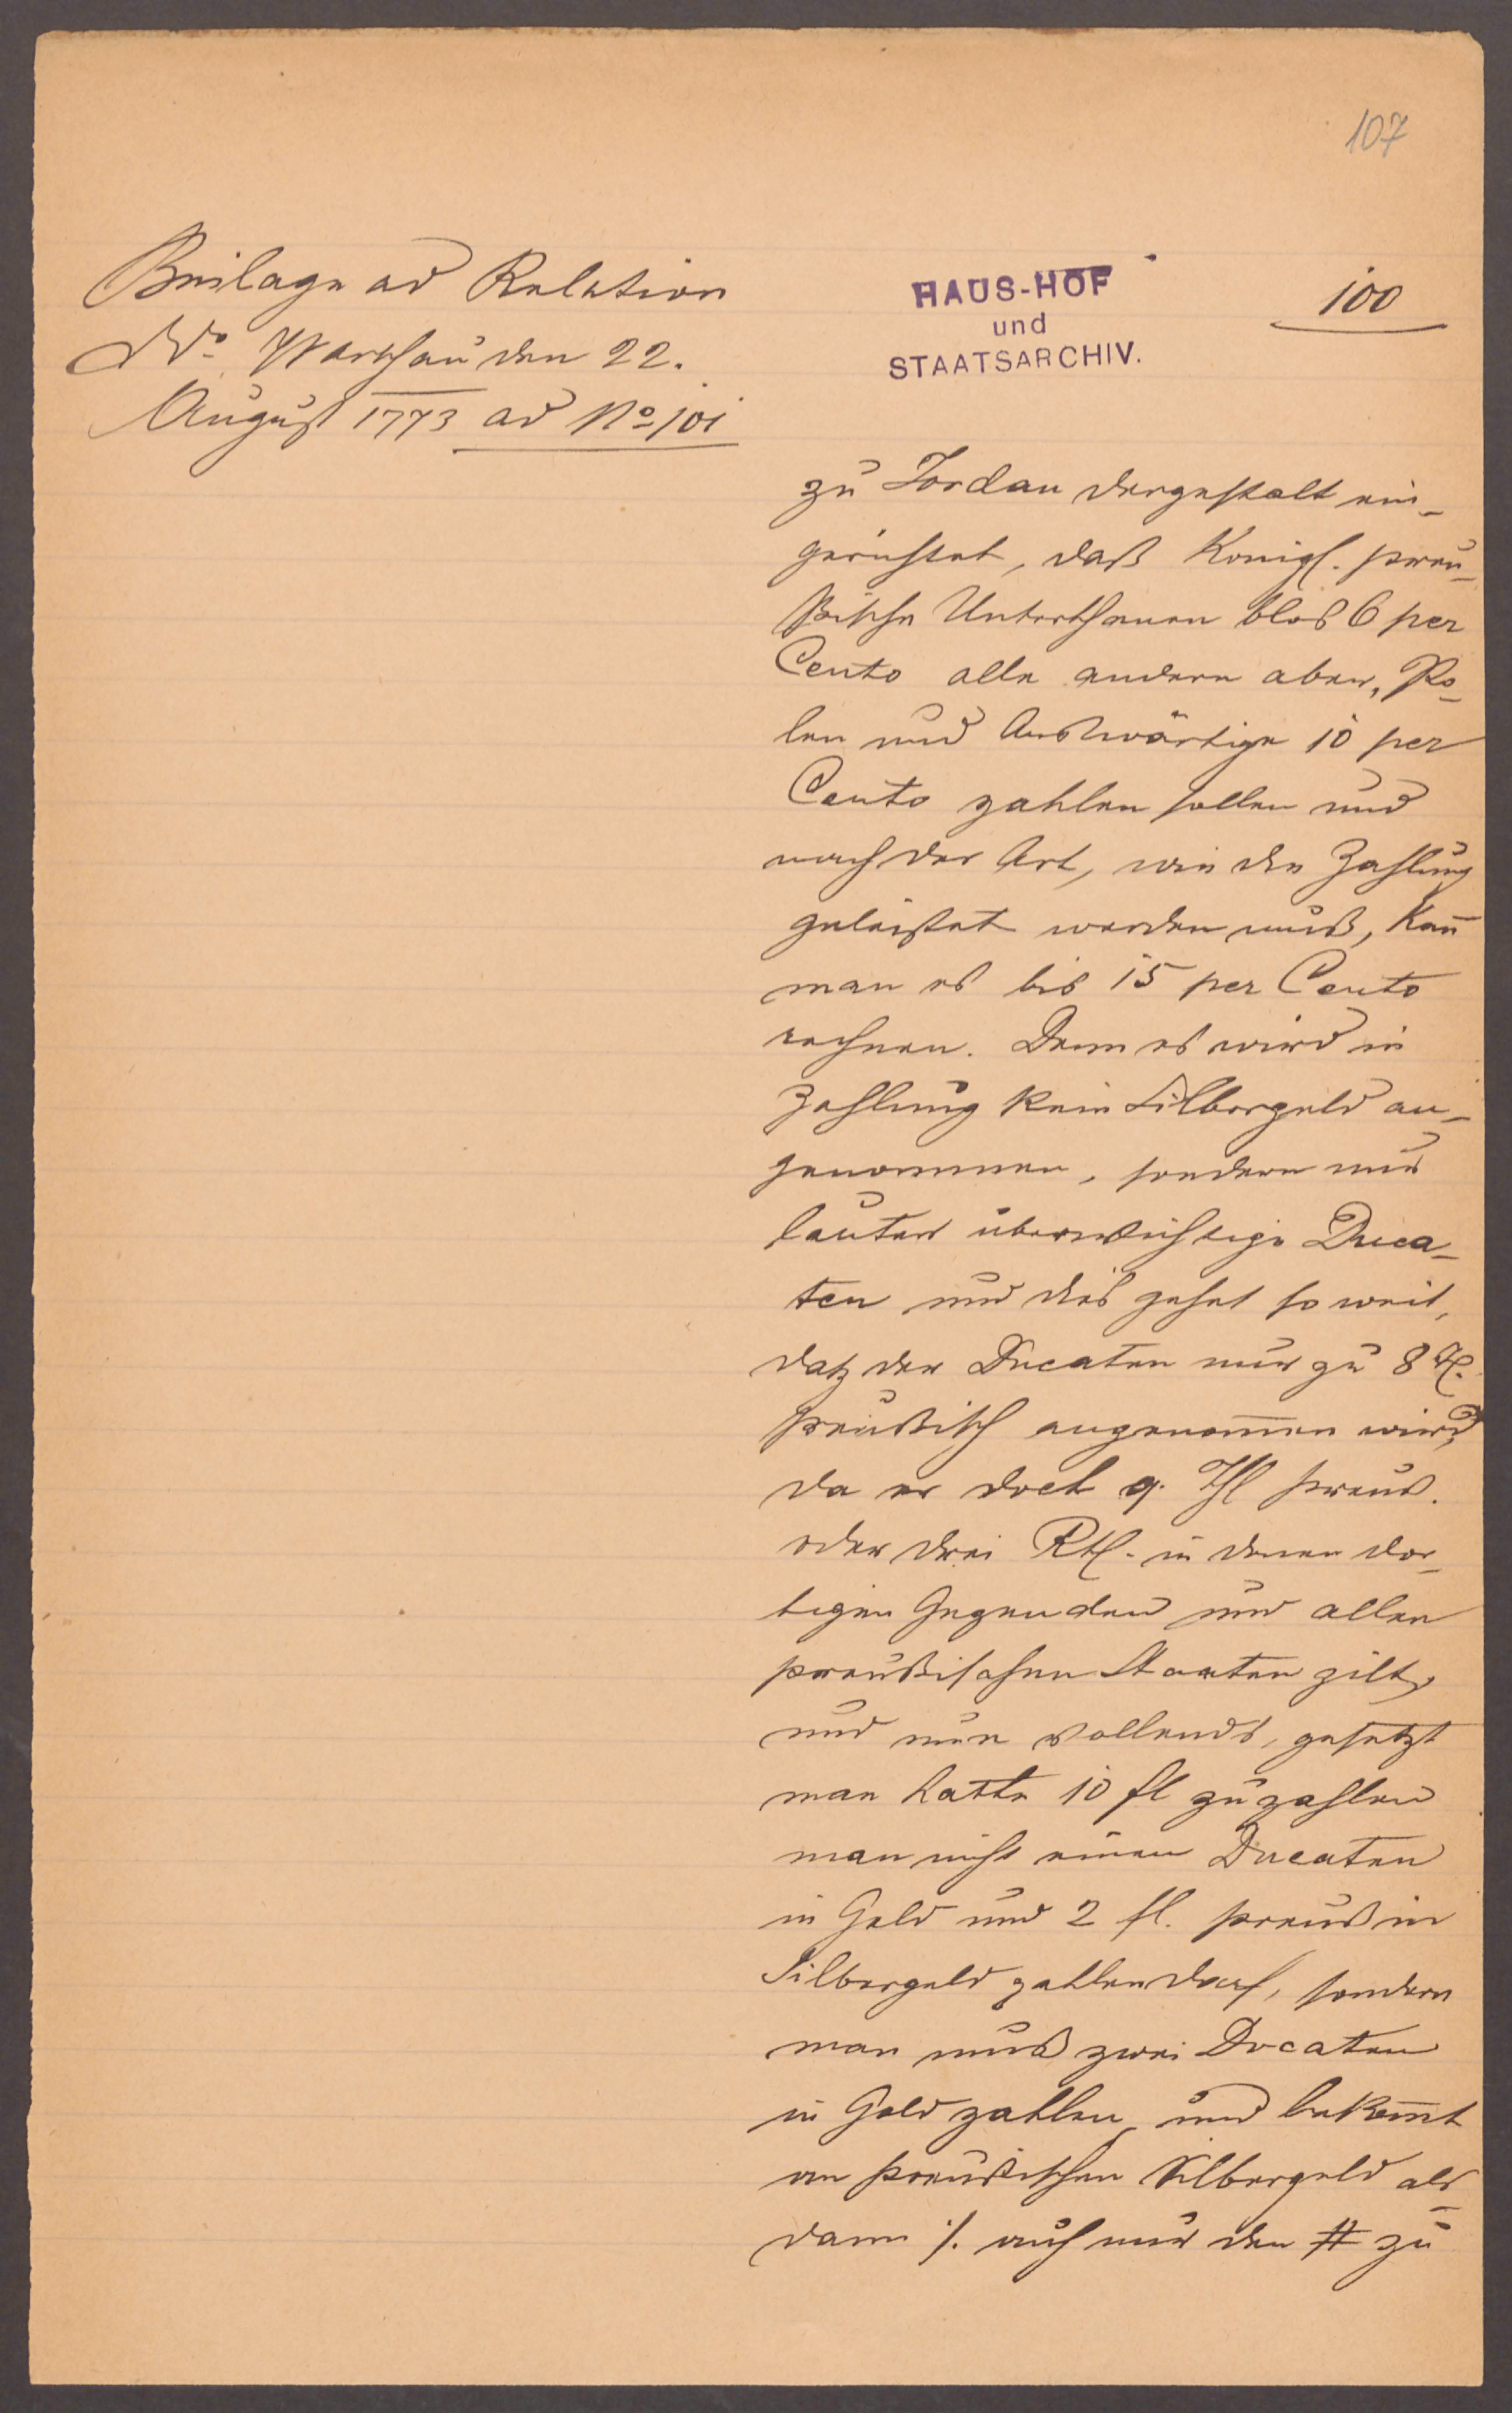 107
Beilage ad Relation
ddo Warschau den 22.
August 1773 ad No 101
HAUS-HOF
und
STAATSARCHIV.
100
zu Fordan dergestalt ein-
gerichtet, daß Königl. preu-
ßische Unterthanen blos 6 per
Cento alle andern aber, Po-
len und Auswärtige 10 per
Cento zahlen sollen und
nach der Art, wie die Zahlung
geleistet werden muß, kan̄
man es bis 15 per Cento
rechnen. Denn es wird in
Zahlung kein Silbergeld an-
genommen, sondern nur
lauter überwichtige Duca-
ten und dies gehet so weit,
daß der Ducaten nur zu 8 fl.
preußisch angenom̄en wird,
da er doch 9. fl preuß.
oder drei Rtl. in denen dor-
tigen Gegenden und allen
preußischen Staaten gilt,
und nun vollends, gesetzt
man hatte 10 fl zu zahlen
man nicht einen Ducaten
in Gold und 2 fl. preuß in
Silbergeld zahlen darf, sondern
man muß zwei Ducaten
in Gold zahlen und bekom̄t
an preußischen Silbergeld als-
dann /. auch nur den # zu